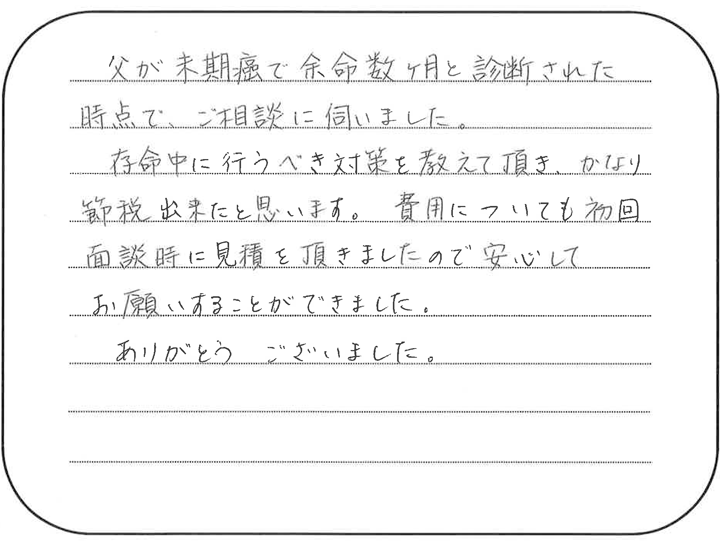 父が末期癌で余命数ヶ月と診断された
時点で、ご相談に伺いました。
存命中に行うべき対策を教えて頂き、かなり
節税出来たと思います。 費用についても初回
面談時に見積を頂きましたので安心して
お願いすることができました。
ありがとう ございました。